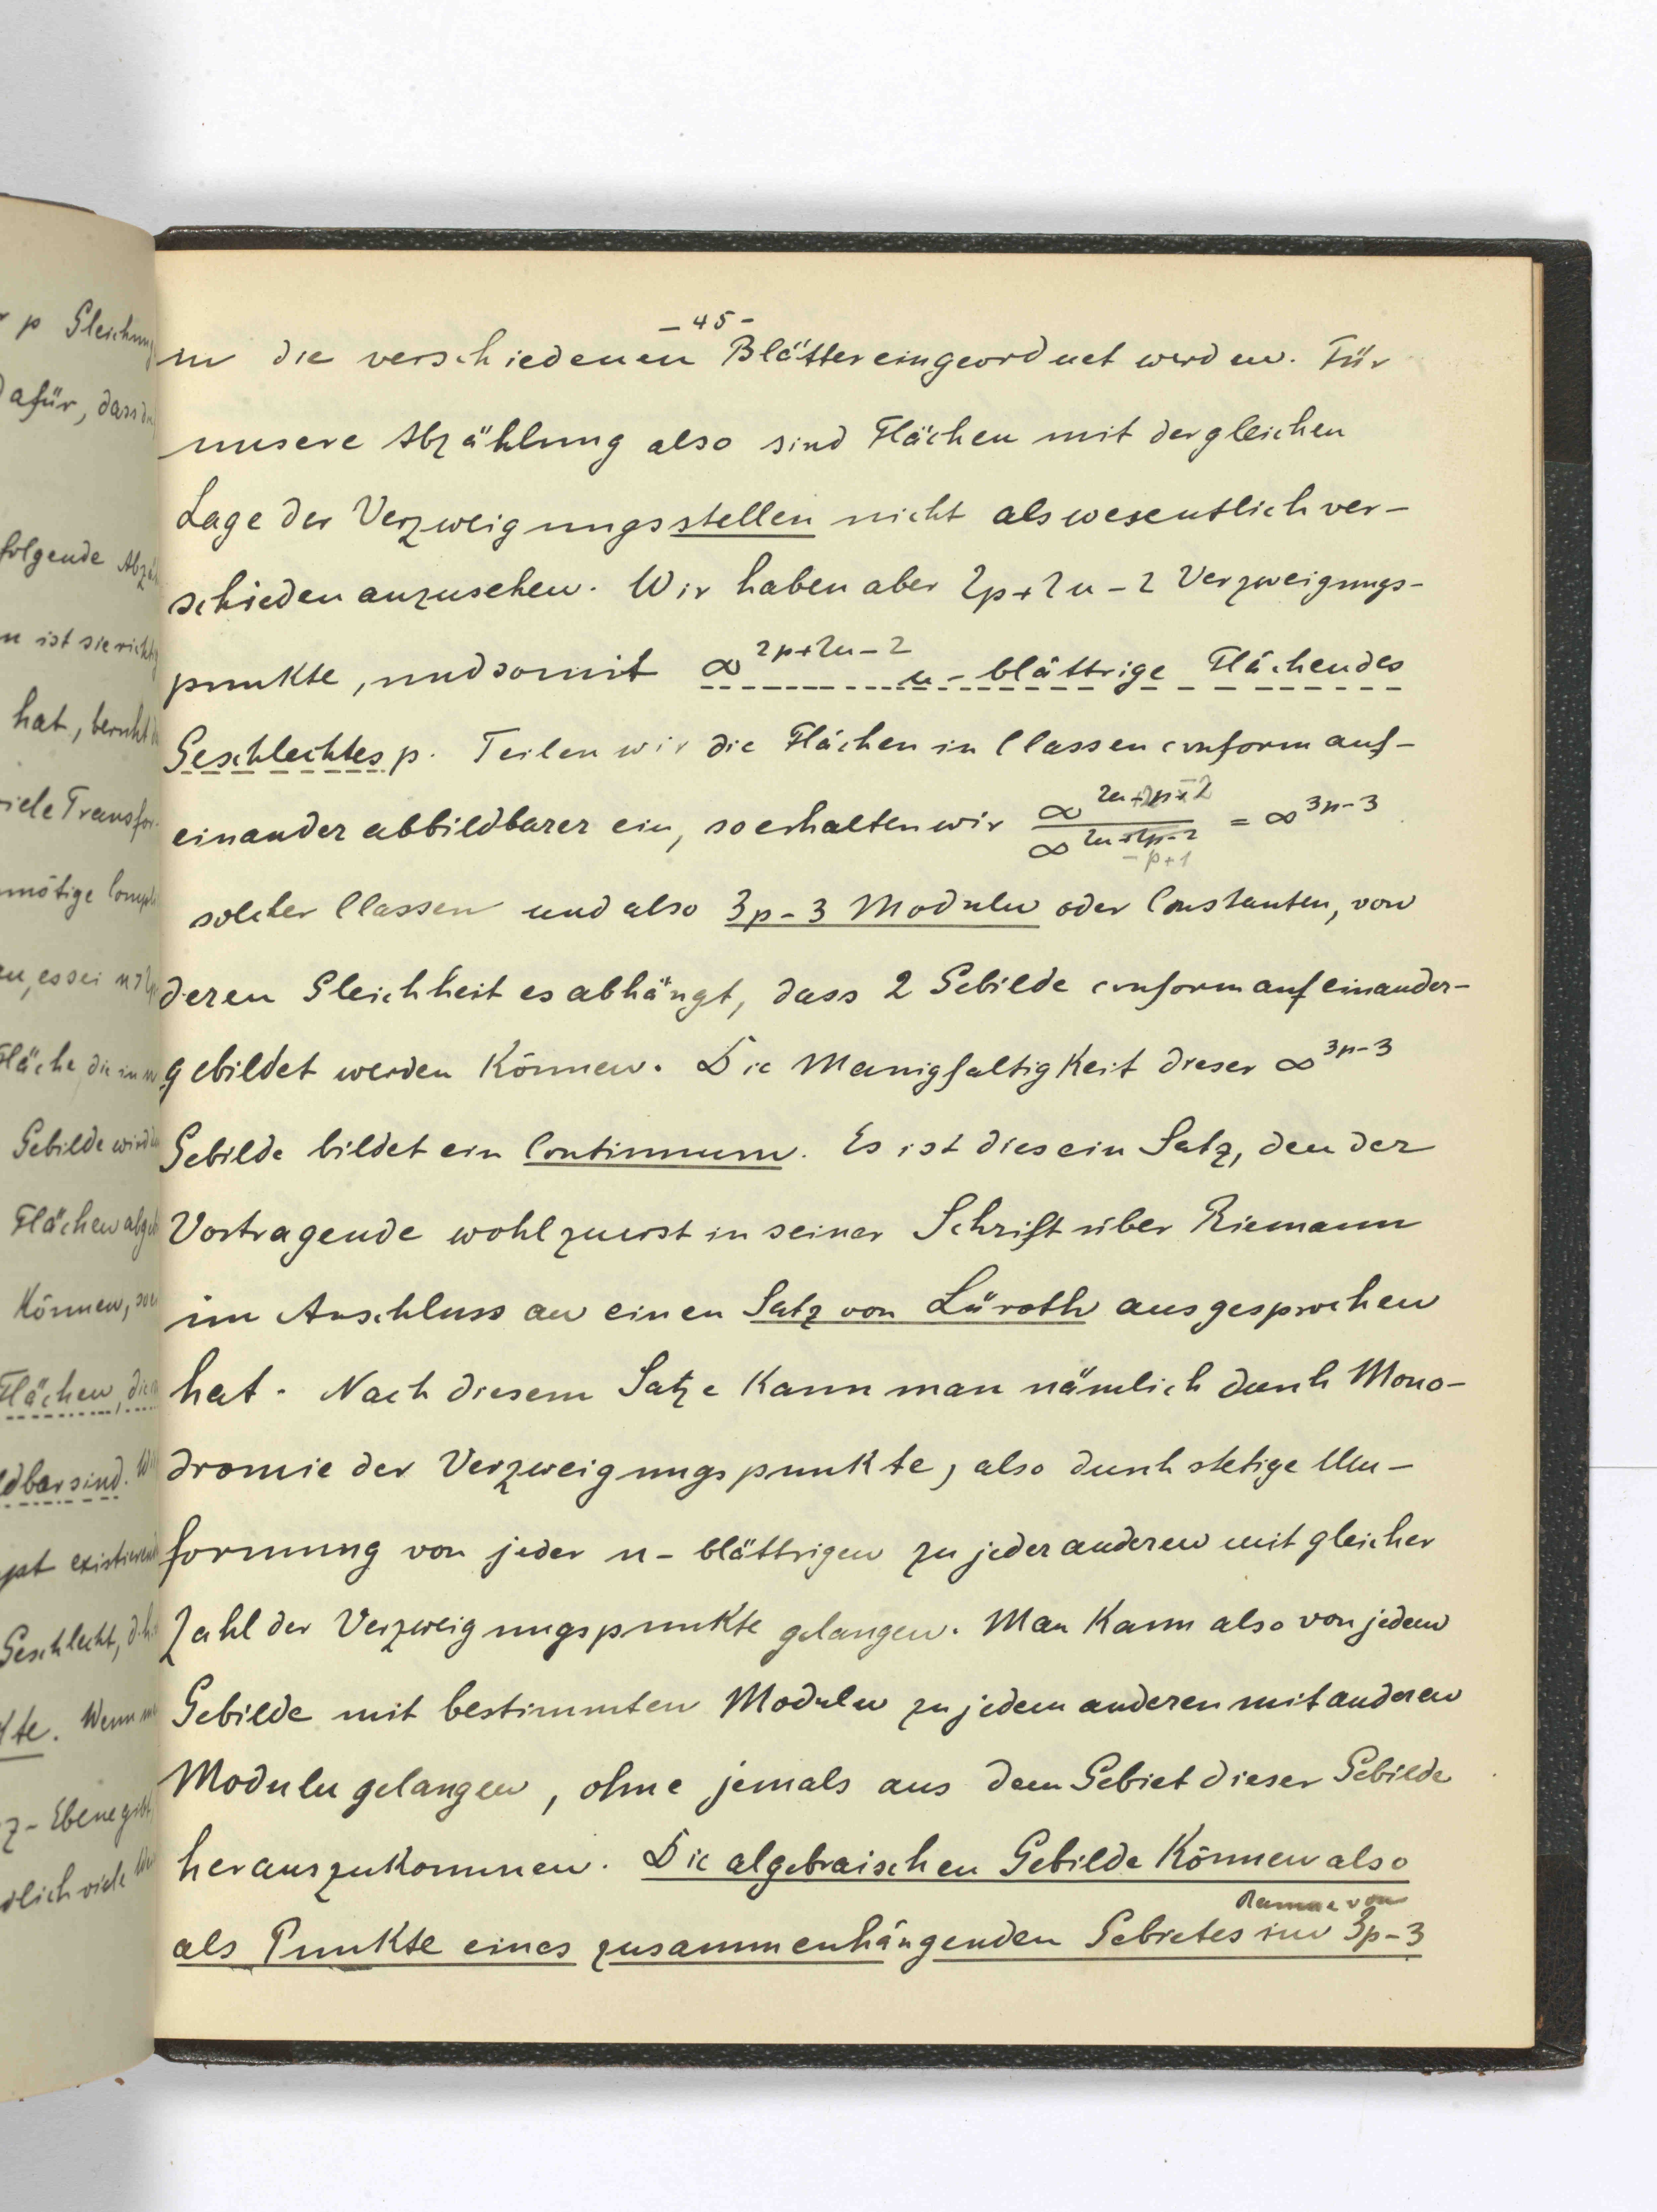 - 45 -
in die verschiedenen Blätter eingeordnet werden. Für
unsere Abzählung also sind Flächen mit der gleichen
Lage der Verzweigungsstellen nicht als wesentlich ver-
schieden anzusehen. Wir haben aber 2p+2n-2 Verzweigungs-
punkte, und somit ∞^{2p+2n-2} n-blättrige Flächen des
Geschlechtes p. Teilen wir die Flächen in Classen conform auf-
einander abbildbarer ein, so erhalten wir ∞^{2n+2p-2} / ∞^{2n-p+1} = ∞^{3p-3}
solcher Classen und also 3p-3 Moduln oder Constanten, von
deren Gleichheit es abhängt, dass 2 Gebilde conform auf einander-
gebildet werden können. Die Manigfaltigkeit dieser ∞^{3p-3}
Gebilde bildet ein Continuum. Es ist dies ein Satz, den der
Vortragende wohl zuerst in seiner Schrift über Riemann
im Anschluss an einen Satz von Lüroth ausgesprochen
hat. Nach diesem Satze kann man nämlich durch Mono-
dromie der Verzweigungspunkte, also durch stetige Um-
formung von jeder n-blättrigen zu jeder anderen mit gleicher
Zahl der Verzweigungspunkte gelangen. Man kann also von jedem
Gebilde mit bestimmten Moduln zu jedem anderen mit anderen
Moduln gelangen, ohne jemals aus dem Gebiet dieser Gebilde
herauszukommen. Die algebraischen Gebilde können also
Raume von
als Punkte eines zusammenhängenden Gebietes im 3p-3
p Gleichung
dafür, dass
folgende
ist sie richtig
hat, beruht
Gebilde wird
Können,
Flächen,
Geschlecht,
Wenn
z-Ebene gibt